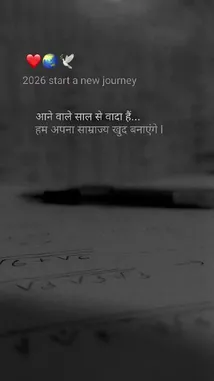 ❤️🌏🕊️
2026 start a new journey
आने वाले साल से वादा हैं...
हम अपना साम्राज्य खुद बनाएंगे।